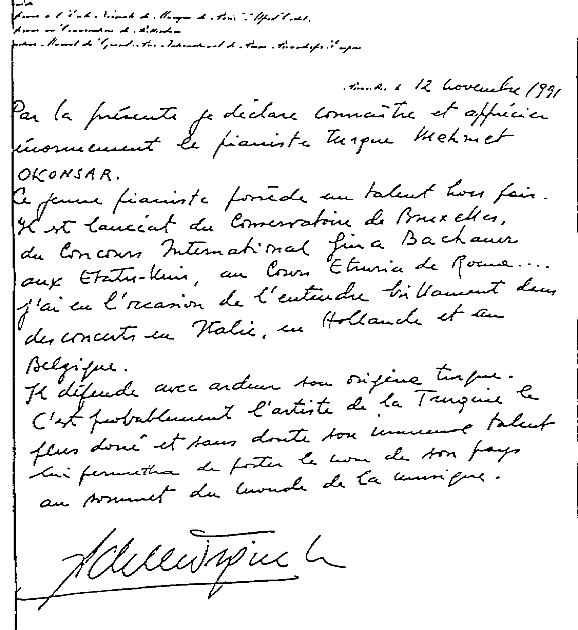 12 novembre 1991
Par la présente je déclare connaître et apprécier
énormement le pianiste turque Mehmet
OKONSAR.
Ce jeune pianiste possède un talent hors pair.
Il est lauréat du Conservatoire de Bruxelles,
du Concours International Gina Bachauer
aux Etats-Unis, au Cours Etruria de Rome....
j'ai eu l'occasion de l'entendre brillament dans
des concerts en Italie, en Hollande et en
Belgique.
Il défende avec ardeur son origine turque.
C'est probablement l'artiste de la Turquie le
plus doué et sans doute son immense talent
lui permettra de porter le nom de son pays
au sommet du monde de la musique.